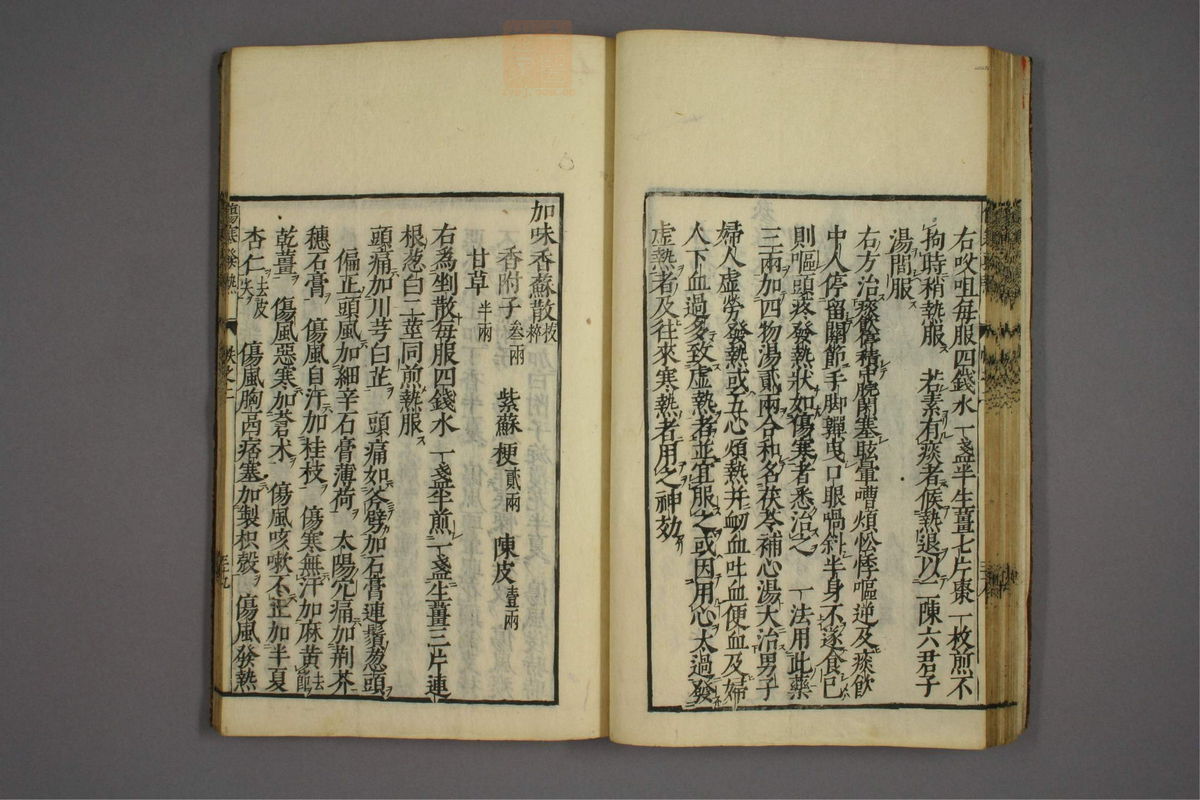 右㕮咀每服四錢水一盞半生薑七片棗一枚煎不
拘時稍熱服 若素有痰者候熱退以二陳六君子
湯間服
右方治痰飲停積中脘閉塞眩暈嘈煩忪悸嘔逆及痰飲
中人停留關節手脚嚲曳口眼喎斜半身不遂食已
則嘔頭疼發熱狀如傷寒者悉治之 一法用此藥
三兩加四物湯貳兩合和名茯苓補心湯大治男子
婦人虛勞發熱或五心煩熱并衂血吐血便血及婦
人下血過多致虛熱者並宜服之或因用心太過發
虛熱者及往來寒熱者用之神効
加味香蘇散 拔粹
香附子 叁兩 紫蘇梗 貳兩 陳皮 壹兩
甘草 半兩
右為剉散每服四錢水一盞半煎一盞生薑三片連
根葱白二莖同煎熱服
頭痛加川芎白芷 頭痛如斧劈加石膏連鬚葱頭
偏正頭風加細辛石膏薄荷 太陽穴痛加荆芥
穗石膏 傷風自汗加桂枝 傷寒無汗加麻黃 去節
乾薑 傷風惡寒加蒼朮 傷風咳嗽不止加半夏
杏仁 去皮尖 傷風胸痞塞加製枳殼 傷風發熱
傷寒發熱 卷之二